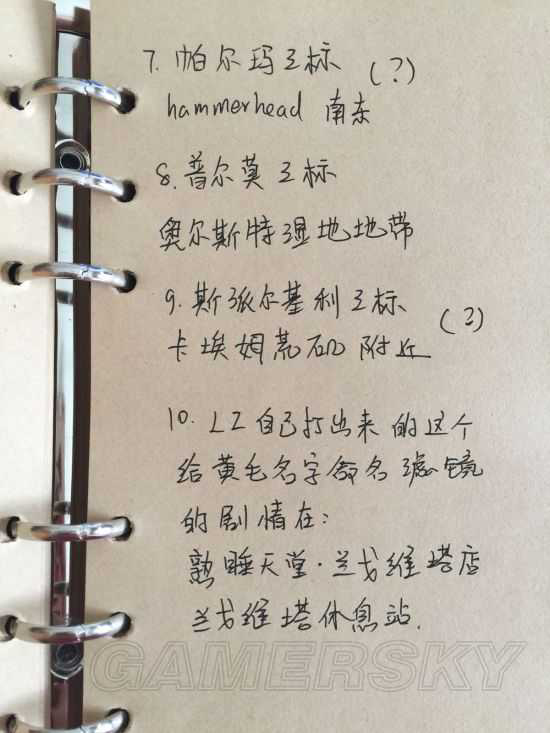 7. 帕尔玛卫标 (?)
hammerhead 南东
8. 普尔莫卫标
奥尔斯特湿地地带
9. 斯派尔基利卫标 (3)
卡埃姆荒矶附近
10. LZ自己打出来的这个
给黄毛名字命名滤镜
的剧情在:
熟睡天堂·兰戈维塔店
兰戈维塔休息站.
GAMERSKY